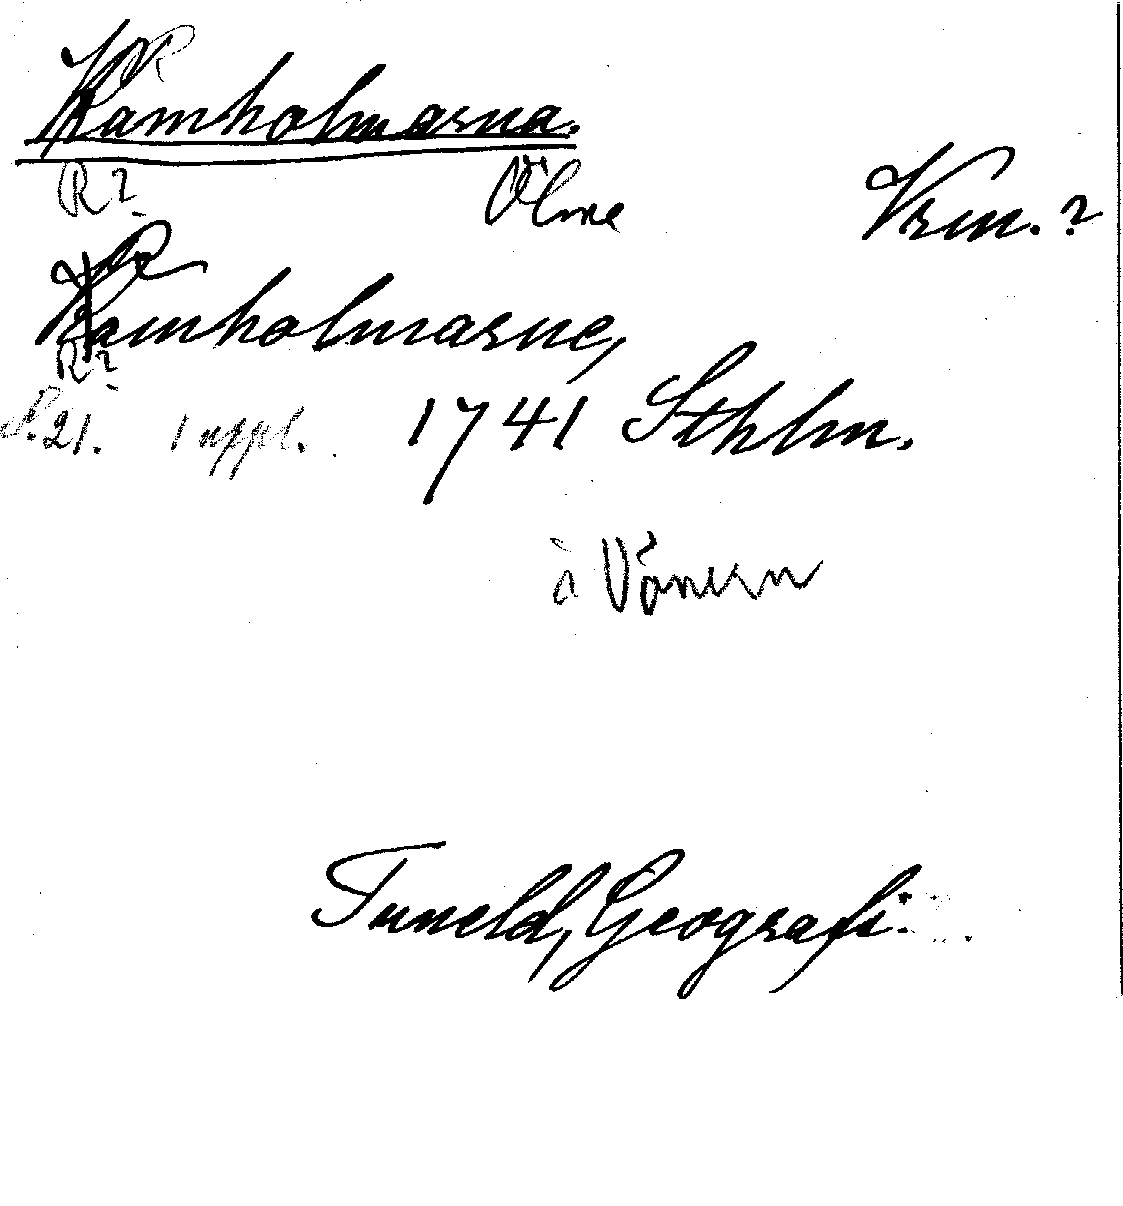 Kamholmarna.
R? Ölme Vrm.?
Kamholmarne,
R?
S. 21. 1 uppl. 1741 Sthlm.
à Vänern
Tuneld, Geografi.